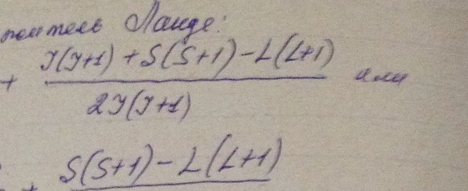 житель Ланде:
+ J(J+1) + S(S+1) - L(L+1) / 2J(J+1) или
+ S(S+1) - L(L+1)